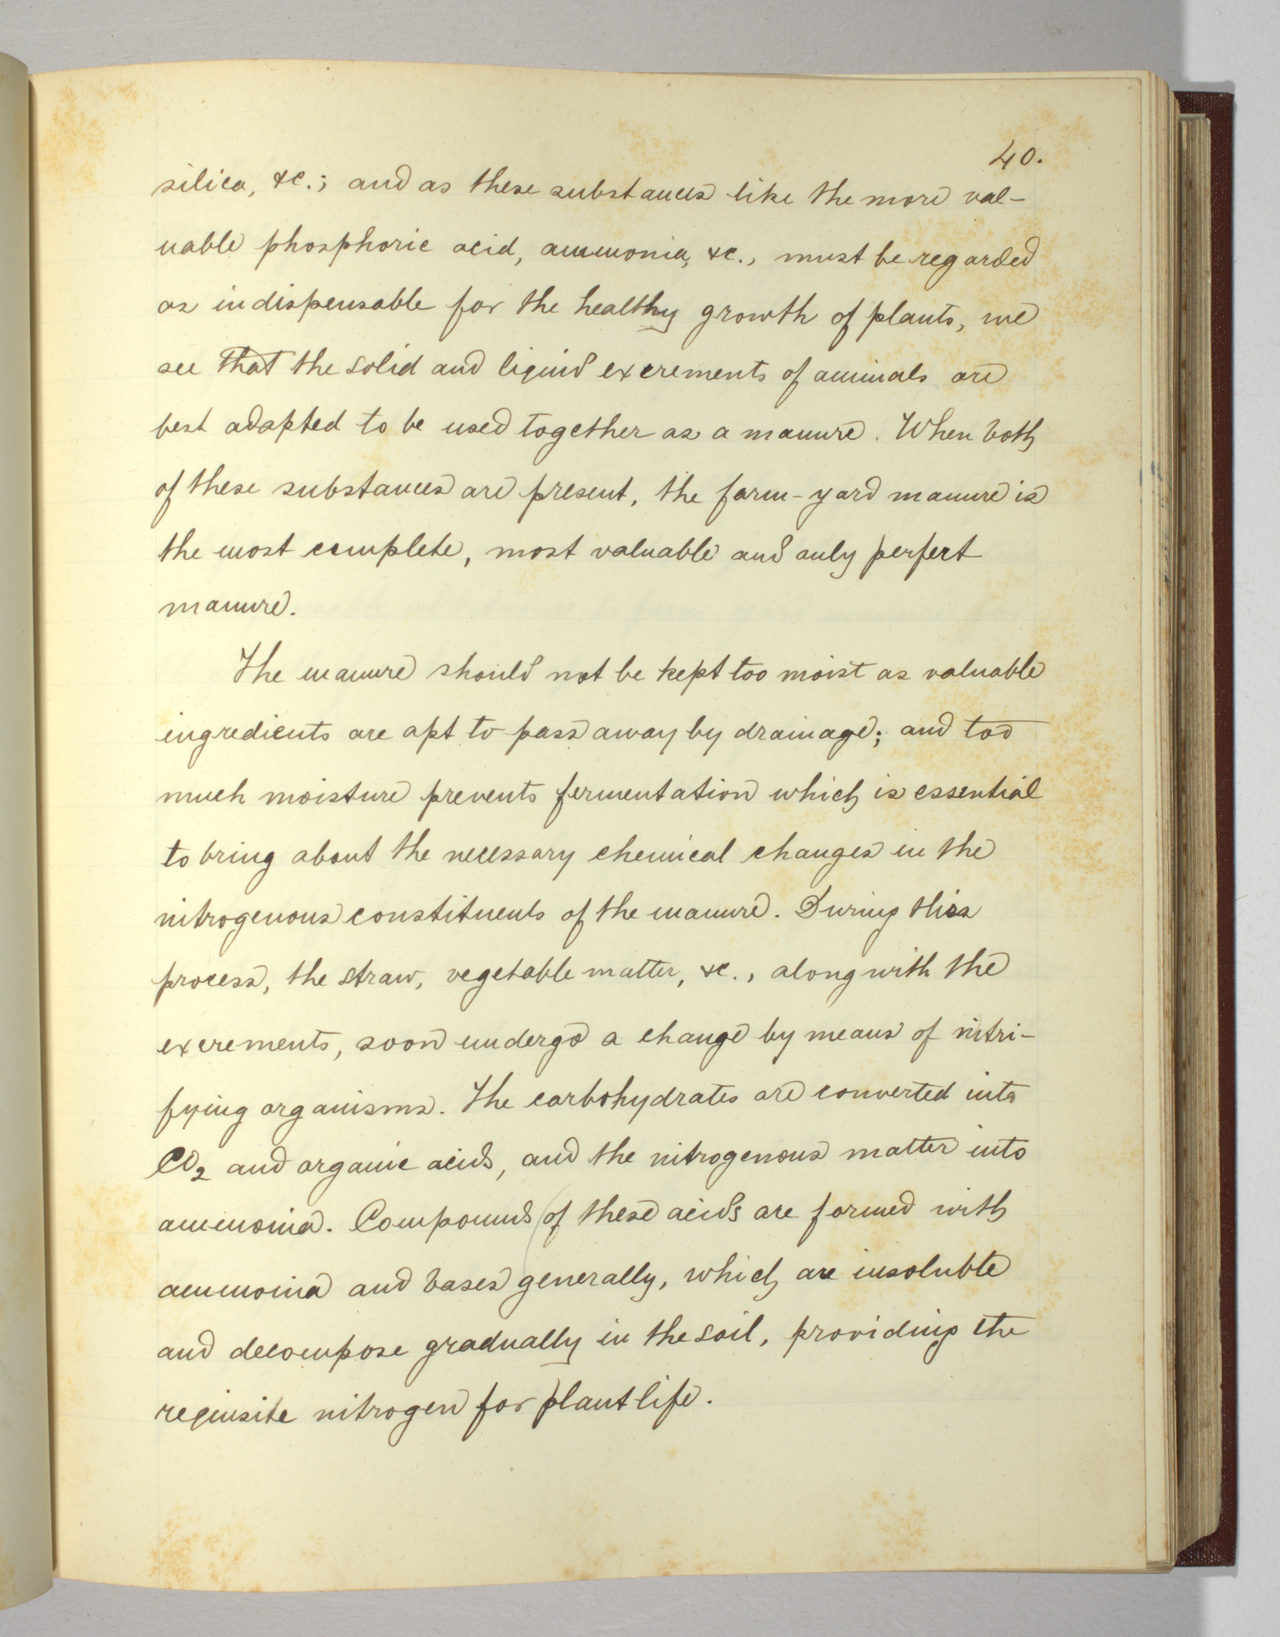 40.
silica, &c.; and as these substances like the more val-
uable phosphoric acid, ammonia, &c., must be regarded
as indispensable for the healthy growth of plants, we
see that the solid and liquid excrements of animals are
best adapted to be used together as a manure. When both
of these substances are present, the farm-yard manure is
the most complete, most valuable and only perfect
manure.
The manure should not be kept too moist as valuable
ingredients are apt to pass away by drainage; and too
much moisture prevents fermentation which is essential
to bring about the necessary chemical changes in the
nitrogenous constituents of the manure. During this
process, the straw, vegetable matter, &c., along with the
excrements, soon undergo a change by means of nitri-
fying organisms. The carbohydrates are converted into
CO2 and organic acids, and the nitrogenous matter into
ammonia. Compounds of these acids are formed with
ammonia and bases generally, which are insoluble
and decompose gradually in the soil, providing the
requisite nitrogen for plant life.